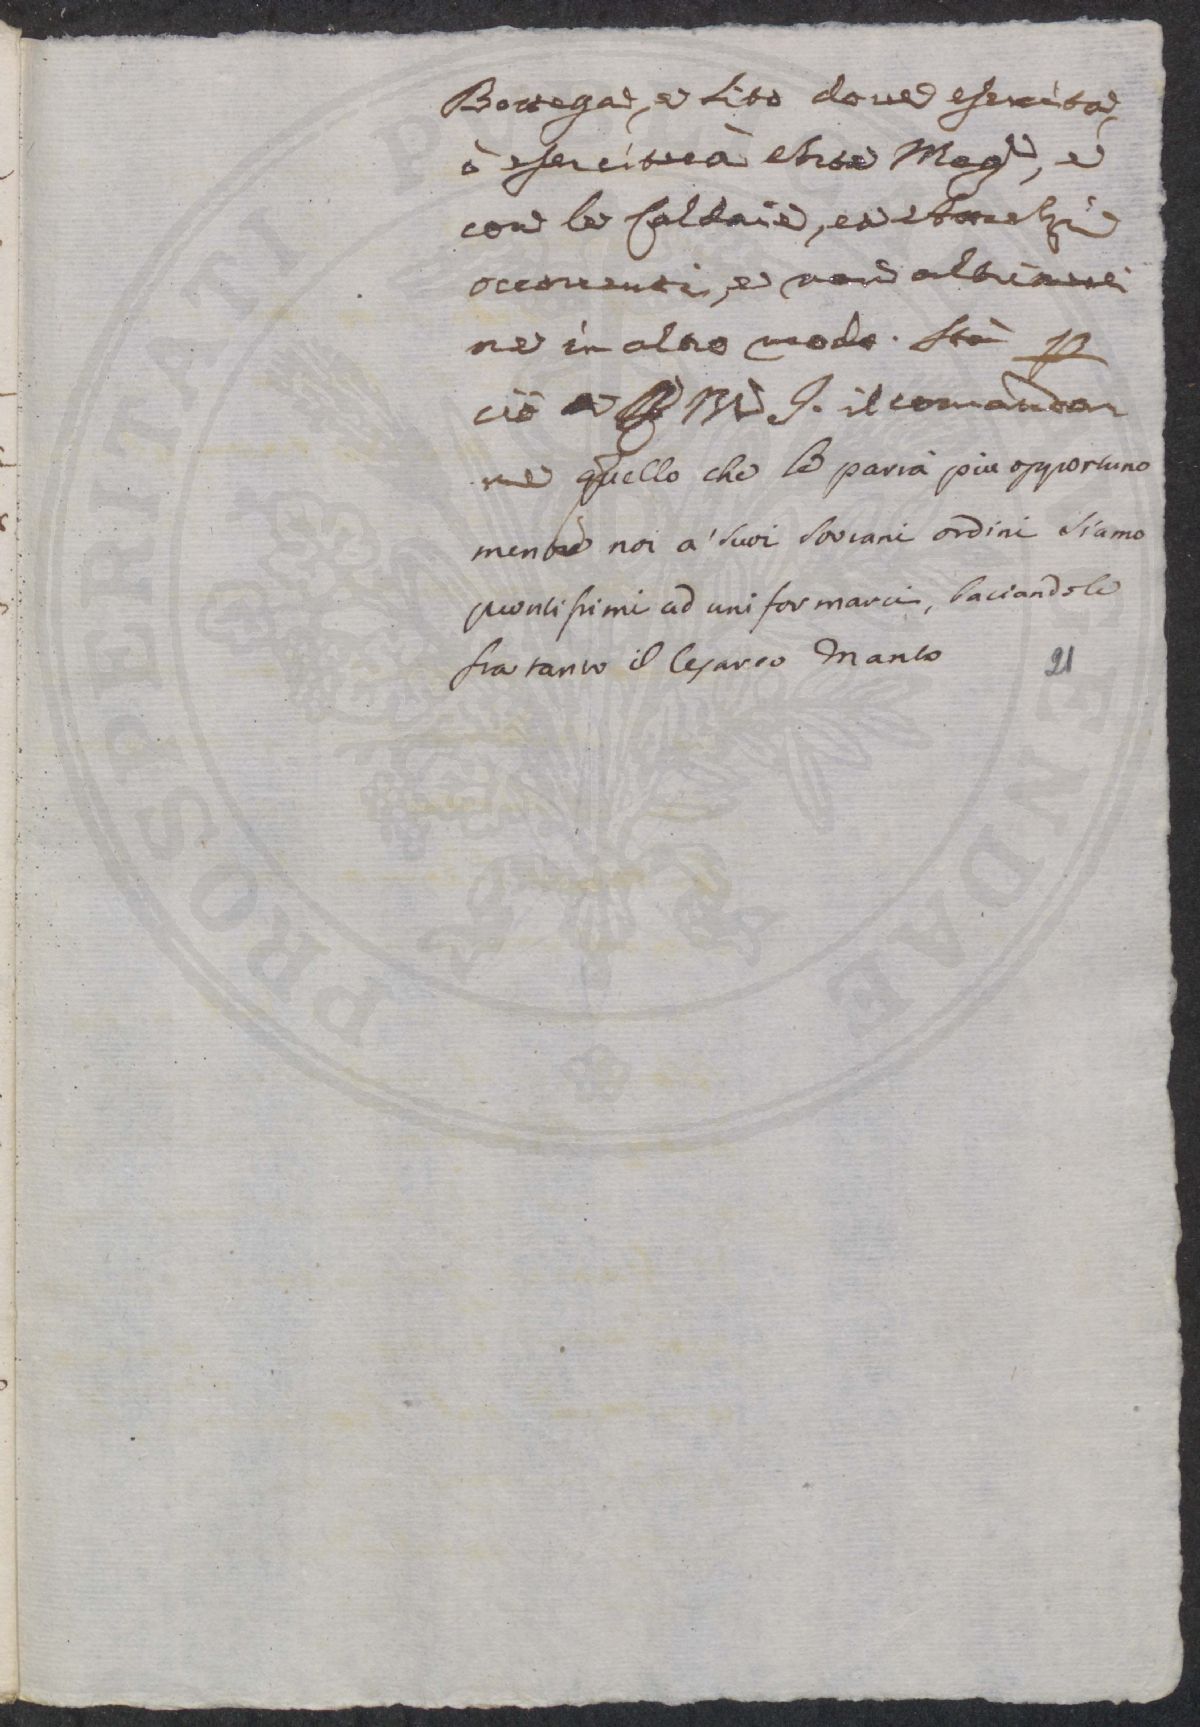 Bottega, e sito doue esercita,
ò esercitarà
con le Caldaie, ed
occorrenti, e non altrimenti
ne in altro modo. Stà p
ciò a V. M. il comandar
ne quello che le parrà piu opportuno
mentre noi a' suoi sovrani ordini siamo
prontissimi ad uniformarci, baciandole
fra tanto il Cesareo Manto
21
PROSPERITATI PUBLICAE AUGENDAE